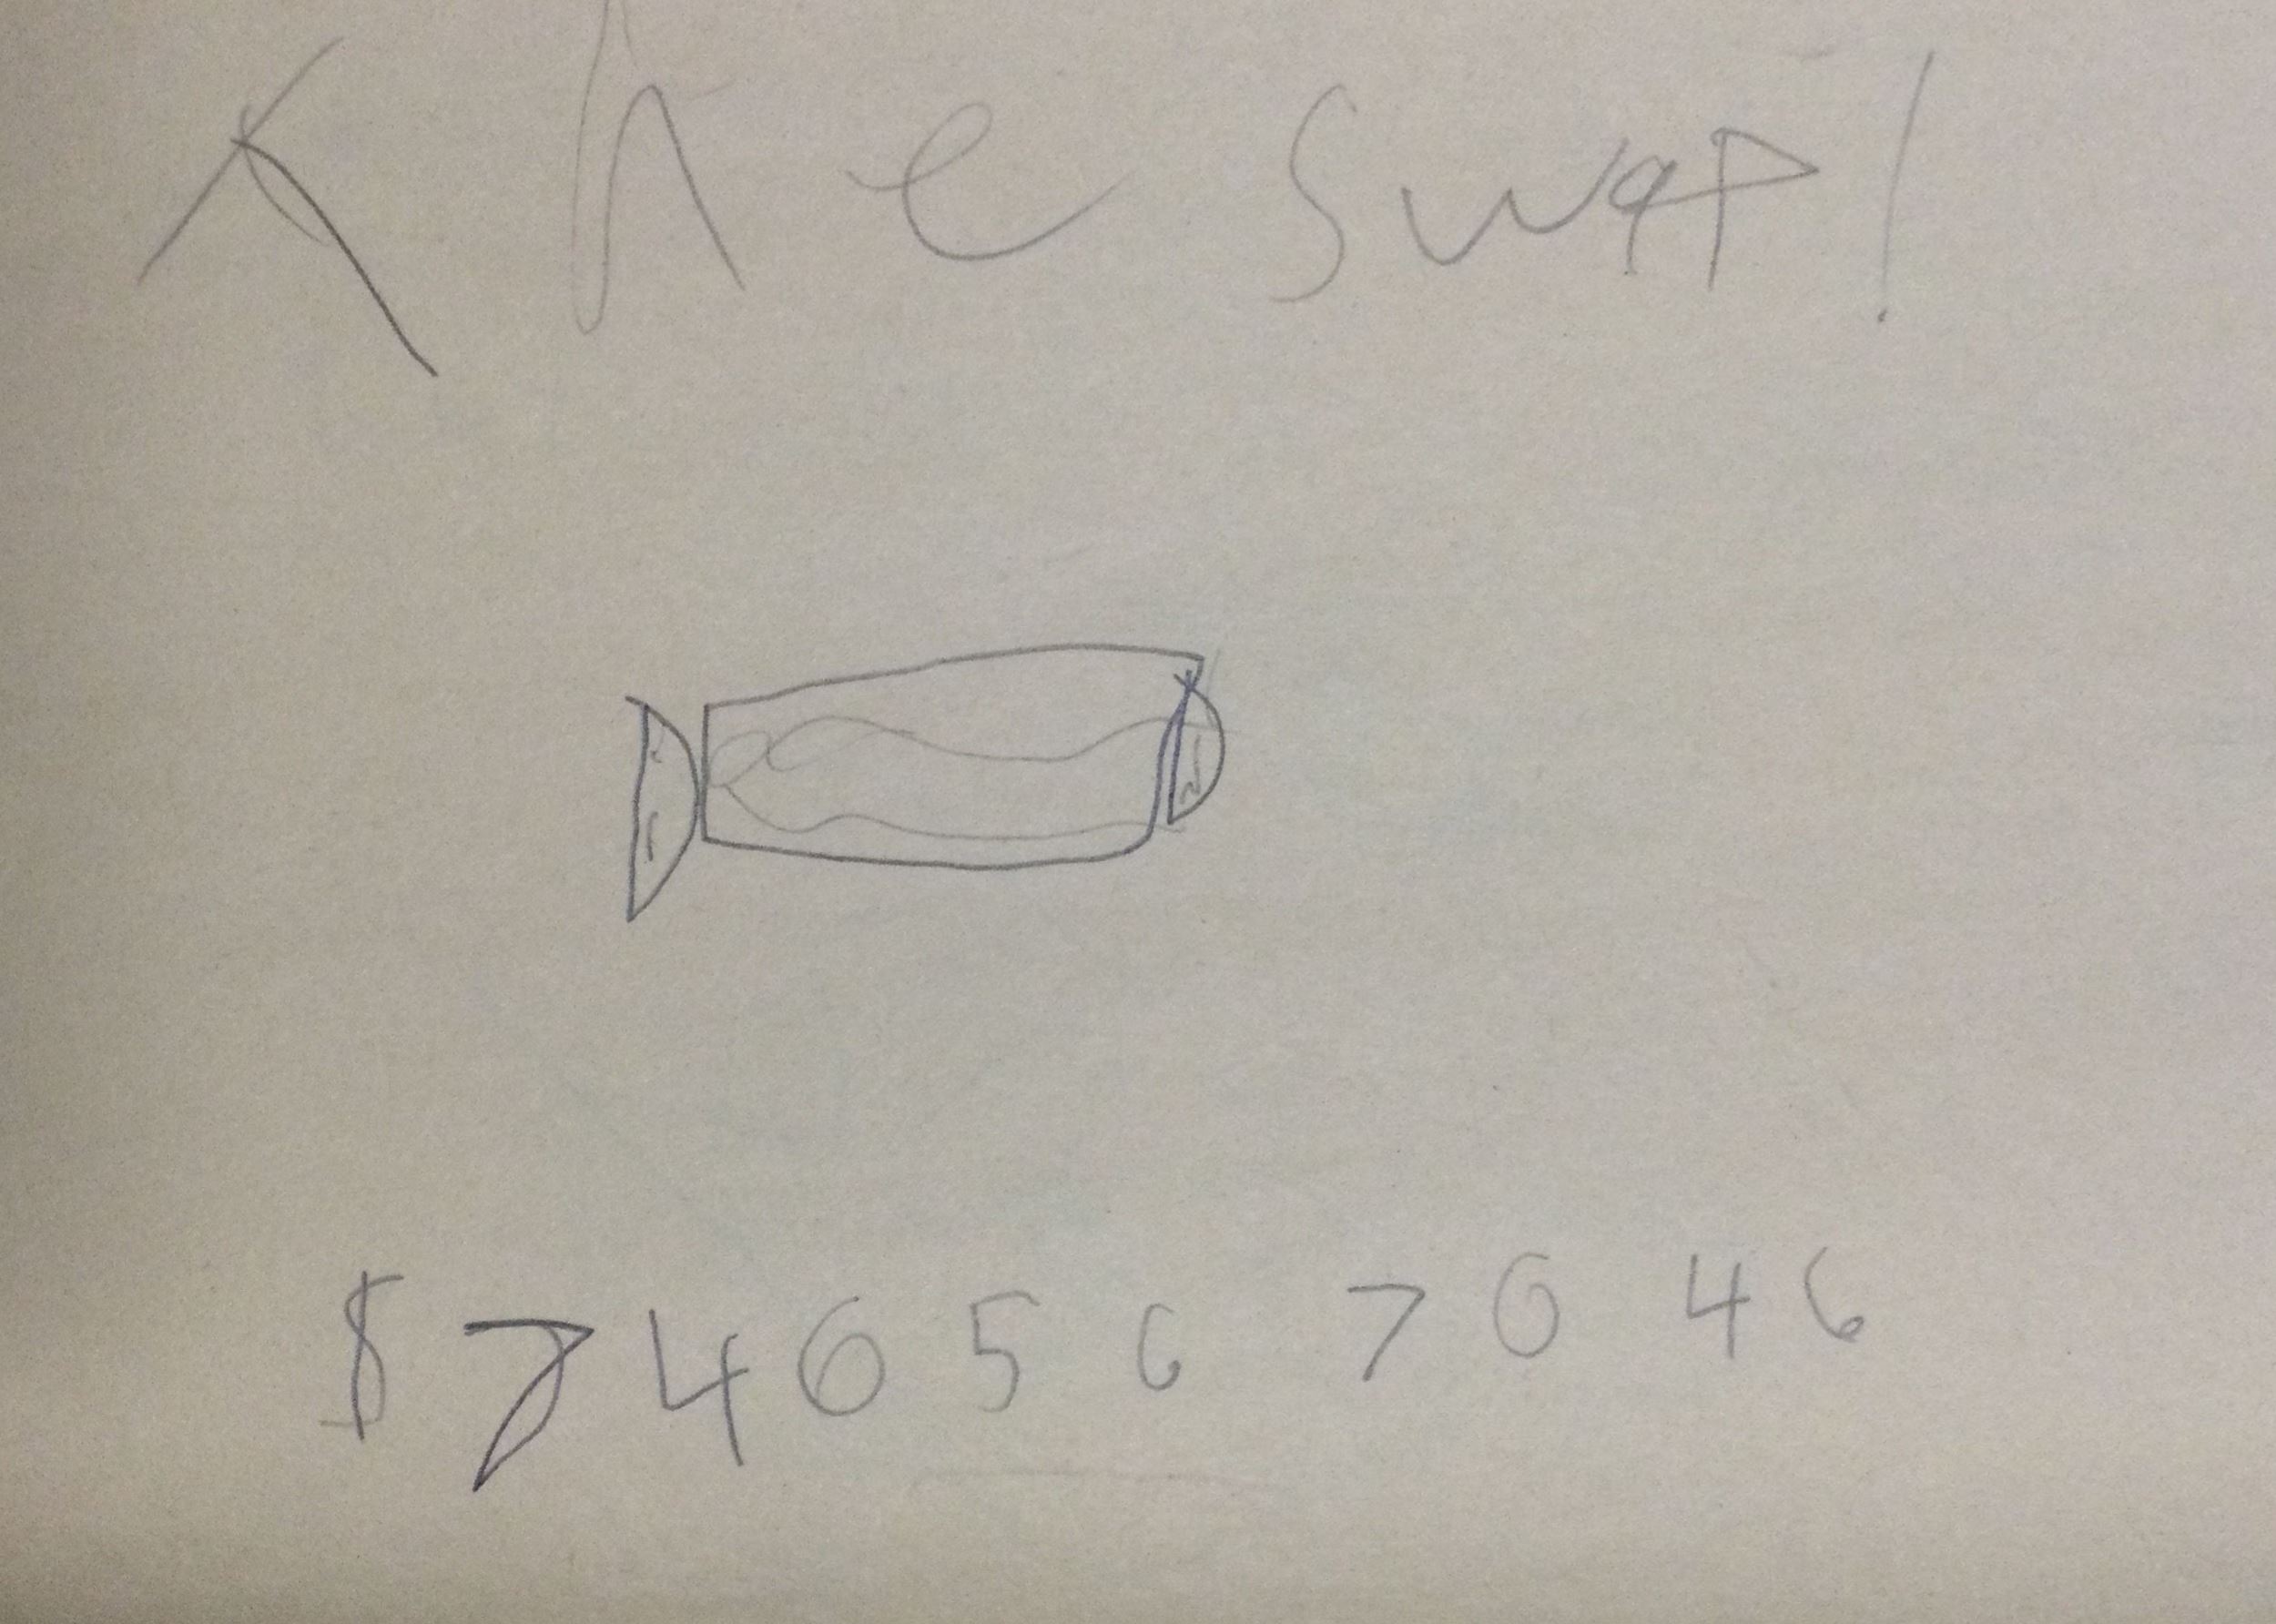 The swap!
$ 7 4 6 5 6 7 6 4 6